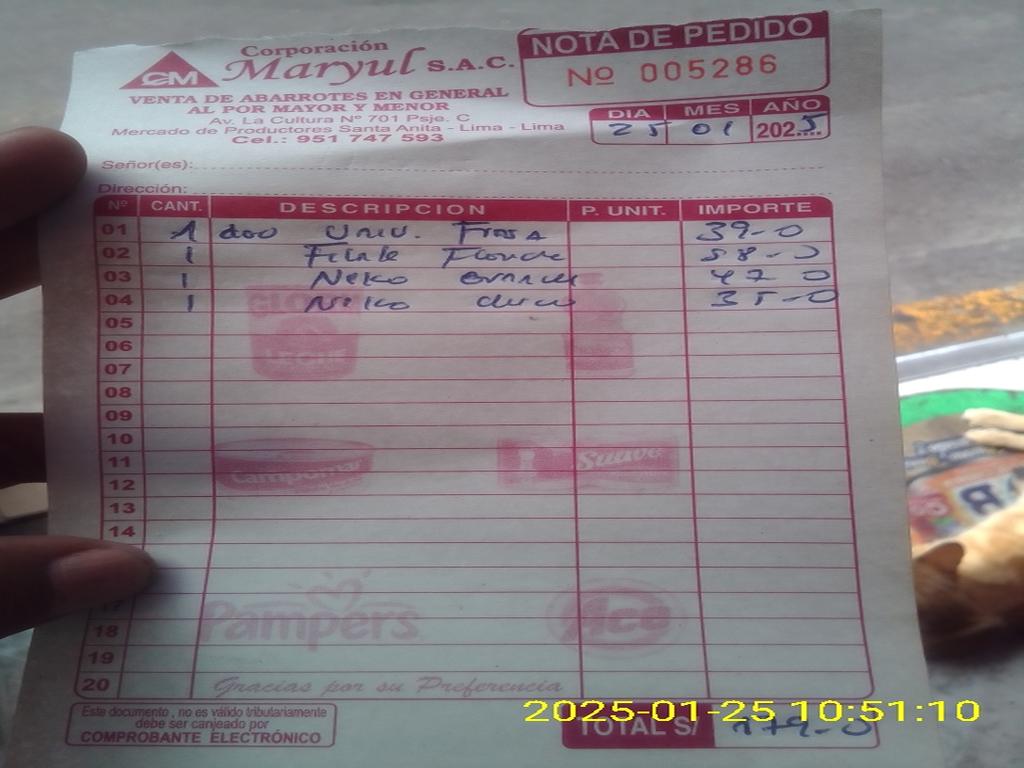 Corporación
CM Maryul S.A.C.
VENTA DE ABARROTES EN GENERAL
AL POR MAYOR Y MENOR
Av. La Cultura Nº 701 Psje. C
Mercado de Productores Santa Anita - Lima - Lima
Cel.: 951 747 593
NOTA DE PEDIDO
Nº 005286
DIA MES AÑO
25 01 2025
Señor(es):
Dirección:
Nº CANT. DESCRIPCION P. UNIT. IMPORTE
01 1 Univ. Fresa 39-0
02 1 58-0
03 1 Neko 47 0
04 1 Neko chico 35-0
05
06
07
08
09
10
11
12
13
14
17
18
19
20
GLORIA
LECHE
Campomar
Suave
Pampers
Ace
Gracias por su Preferencia
Este documento, no es válido tributariamente
debe ser canjeado por
COMPROBANTE ELECTRÓNICO
TOTAL S/ 179-0
2025-01-25 10:51:10